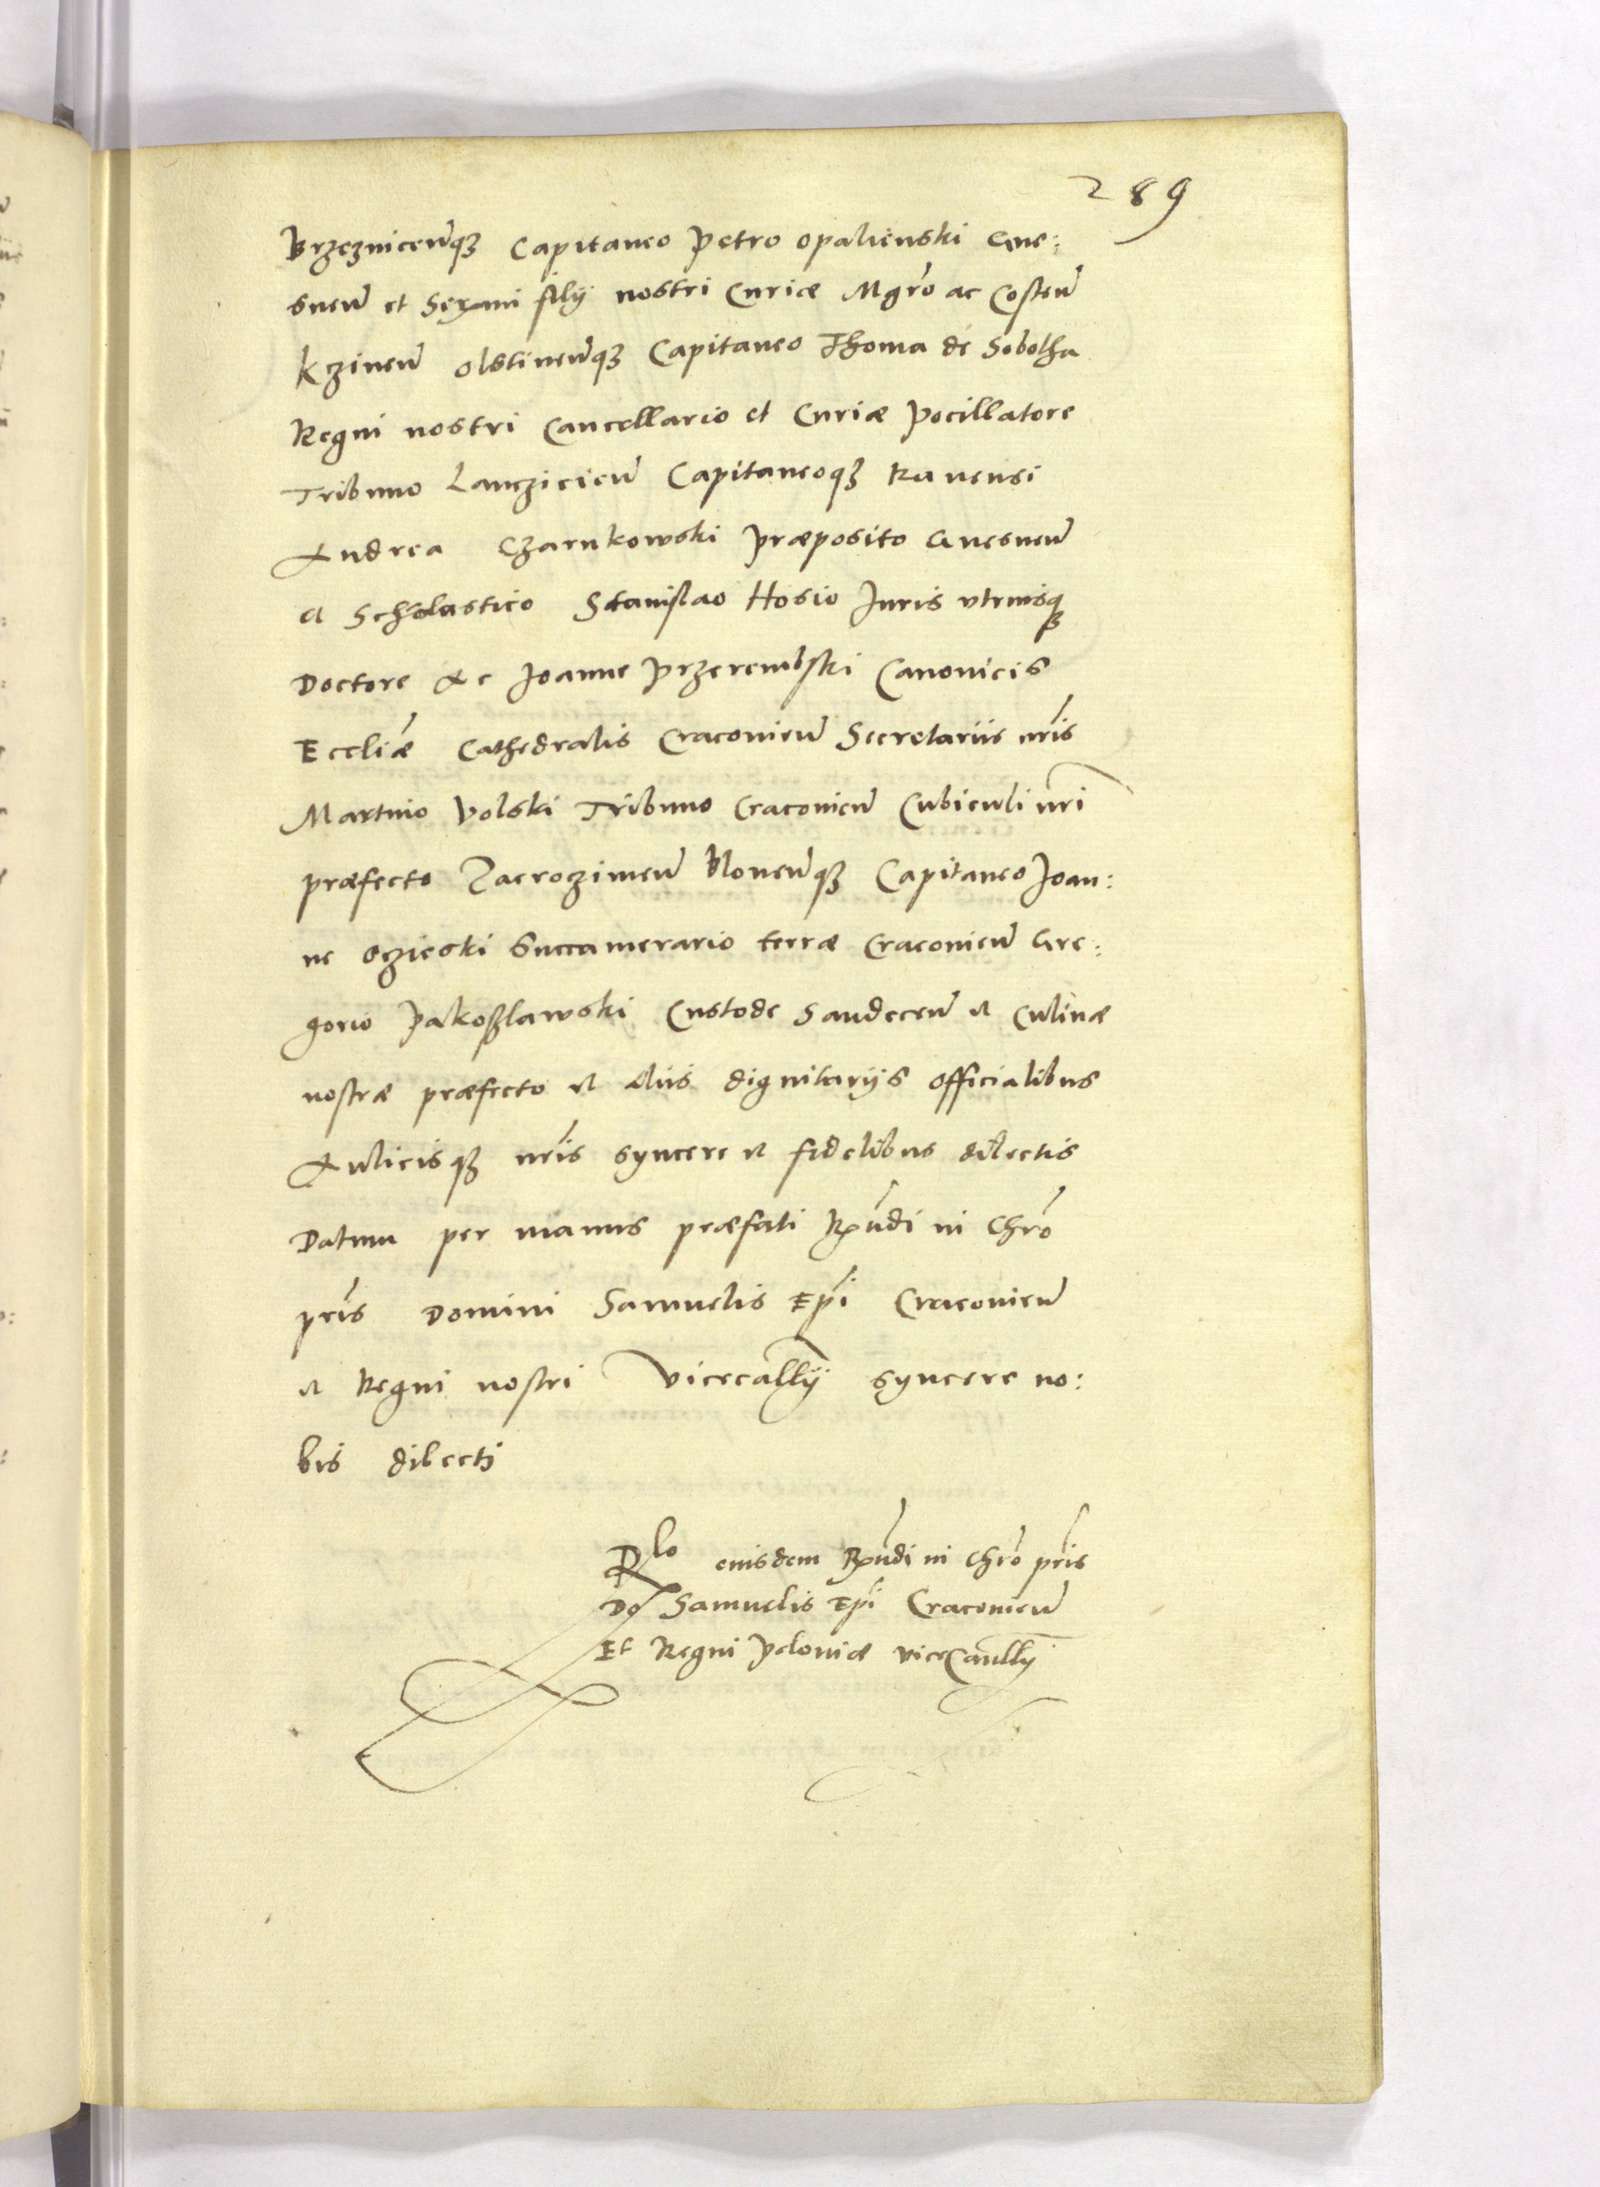 289
Brzeznicen̄qȝ Capitaneo Petro Opalienski Gne:
snen̄ et Serx̄mi filÿ nostri Curiæ Mgr̄o ac Costen̄
Kczinen̄ Olstinen̄qȝ Capitaneo Thoma de Sobotha
Regni nostri Cancellario et Curiæ Pocillatore
Tribuno Lancziciēn Capitaneoqȝ Ravensi
Andrea Czarnkowski Præposito Gnesnen̄
et Scholastico Stanislao Hosio Juris vtriusqȝ
Doctore Ac Joanne Przerembski Canonicis
Eccliǣ Cathedralis Cracovien̄ Secretariis nr̄is
Martino Volski Tribuno Cracovien̄ Cubiculi nr̄i
præfecto Zacroczimen̄ Blonen̄qȝ Capitaneo Joan:
ne Oczieski Succamerario terræ Cracovien̄ Gre:
gorio Pakoßlawski Custode Sandecen̄ et Culinæ
nostræ præfecto et aliis dignitarÿs officialibus
Aulicisqȝ nr̄is syncere et fidelibus dilectis
Datum per manus præfati Rx̄ndi in Chr̄o
pr̄is Domini Samuelis Ep̄i Cracovien̄
et Regni nostri Vicecallȳ syncere no:
bis dilecti
Rlo eiusdem Rx̄ndi in Chr̄o pr̄is
Do Samuelis Ep̄i Cracovien̄
Et Regni Poloniæ viceCan̄llÿ